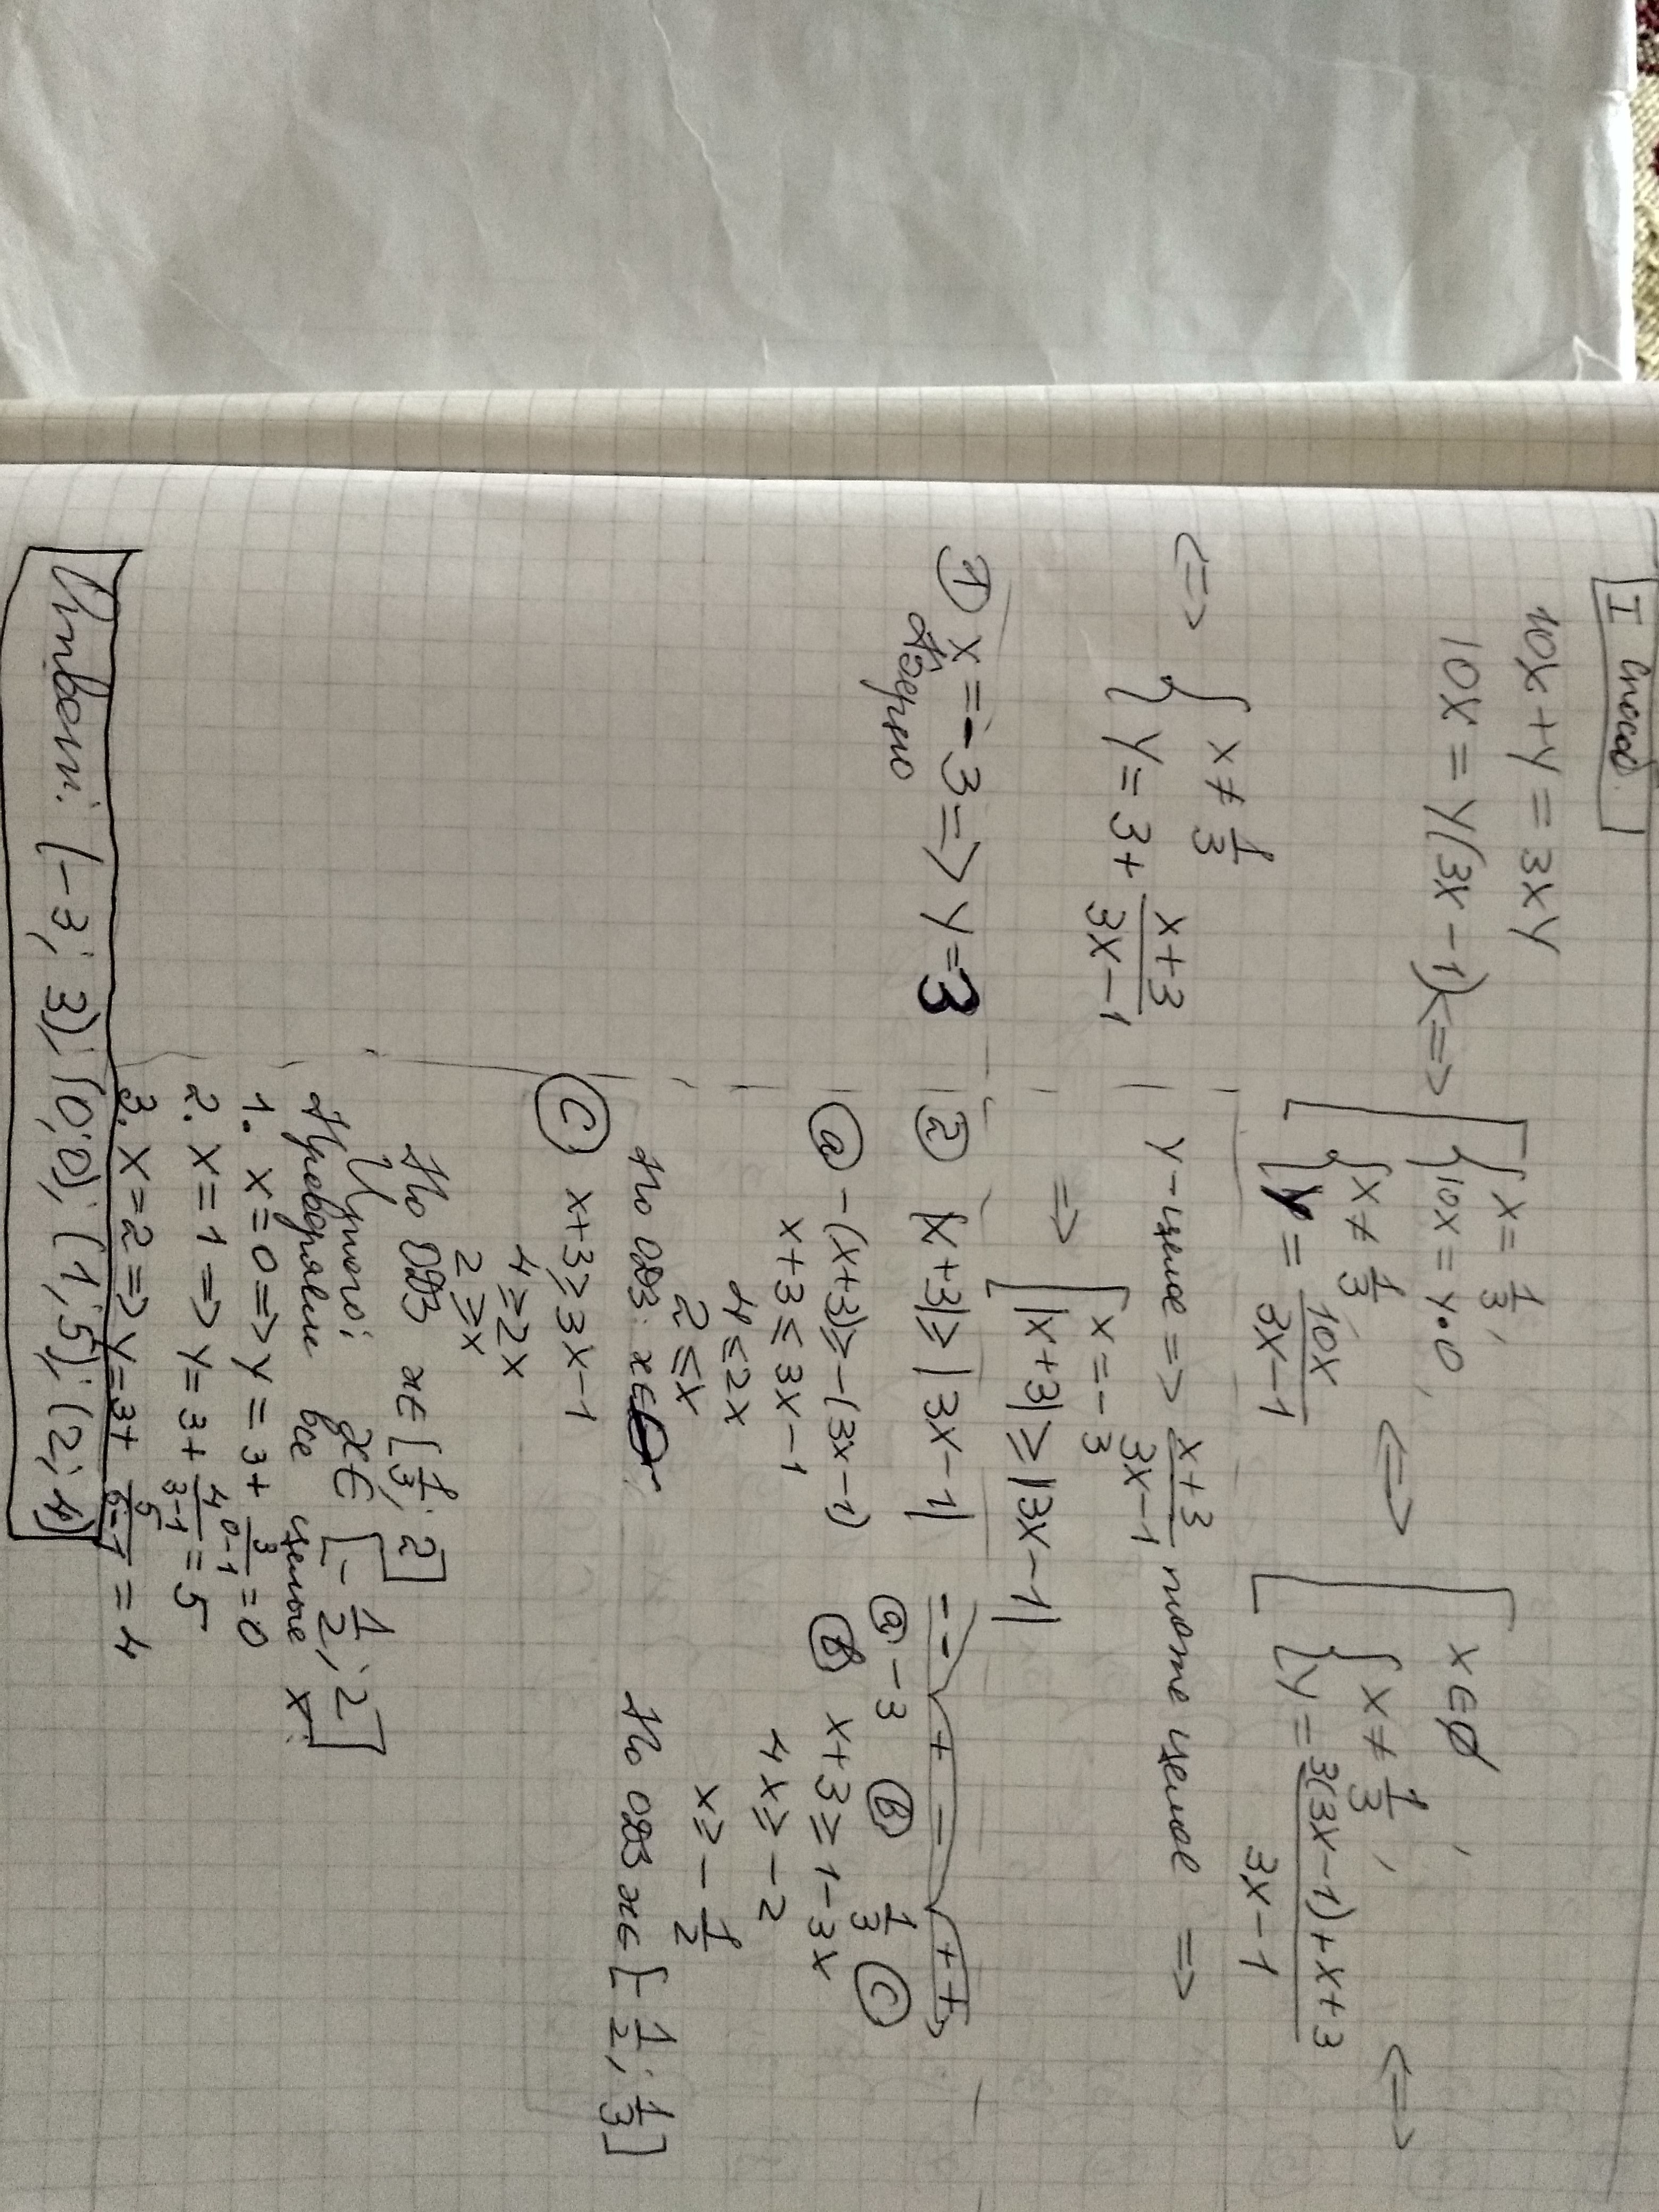 I способ
10x + y = 3xy
10x = y(3x-1) <=> [ { x = 1/3, 10x = y·0, { x ≠ 1/3 y = 10x/(3x-1) <=> [ x ∈ ∅, { x ≠ 1/3, y = (3(3x-1)+x+3)/(3x-1) <=>
<=> { x ≠ 1/3 y = 3 + (x+3)/(3x-1)
y - целое => (x+3)/(3x-1) тоже целое =>
=> [ x = -3 |x+3| ≥ |3x-1|
① x = -3 => y = 3
② |x+3| ≥ |3x-1|
-- + - ++
ⓐ -3 ⓑ 1/3 ⓒ
ⓐ -(x+3) ≥ -(3x-1)
x+3 ≤ 3x-1
4 ≤ 2x
2 ≤ x
Но ОДЗ: x ∈ ∅
ⓑ x+3 ≥ 1-3x
4x ≥ -2
x ≥ -1/2
Но ОДЗ x ∈ [-1/2; 1/3]
ⓒ x+3 ≥ 3x-1
4 ≥ 2x
2 ≥ x
Но ОДЗ x ∈ [1/3; 2]
Итого: x ∈ [-1/2; 2]
все целые x:
1. x = 0 => y = 3 + 3/(0-1) = 0
2. x = 1 => y = 3 + 4/(3-1) = 5
3. x = 2 => y = 3 + 5/(6-1) = 4
Ответ: (-3; 3); (0; 0); (1; 5); (2; 4)